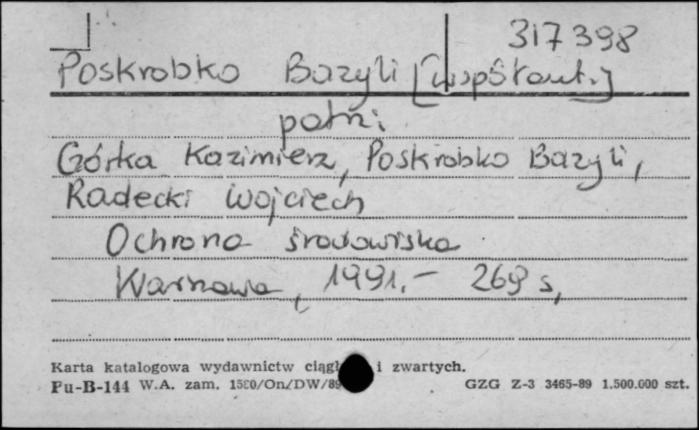 317398
Poskrobko Bazyli [współaut.]
patrz:
Górka Kazimierz, Poskrobko Bazyli,
Radecki Wojciech
Ochrona środowiska
Warszawa, 1991.- 269 s,
Karta katalogowa wydawnictw ciągł i zwartych.
Pu-B-144 W.A. zam. 1580/On/DW/89 GZG Z-3 3465-89 1.500.000 szt.